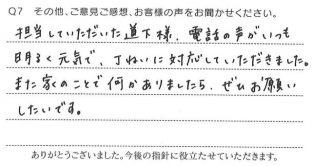 Q7 その他、ご意見ご感想、お客様の声をお聞かせください。
担当していただいた道下様、電話の声がいつも
明るく元気で、丁ねいに対応していただきました。
また家のことで何かありましたら、ぜひお願い
したいです。
ありがとうございました。今後の指針に役立たせていただきます。